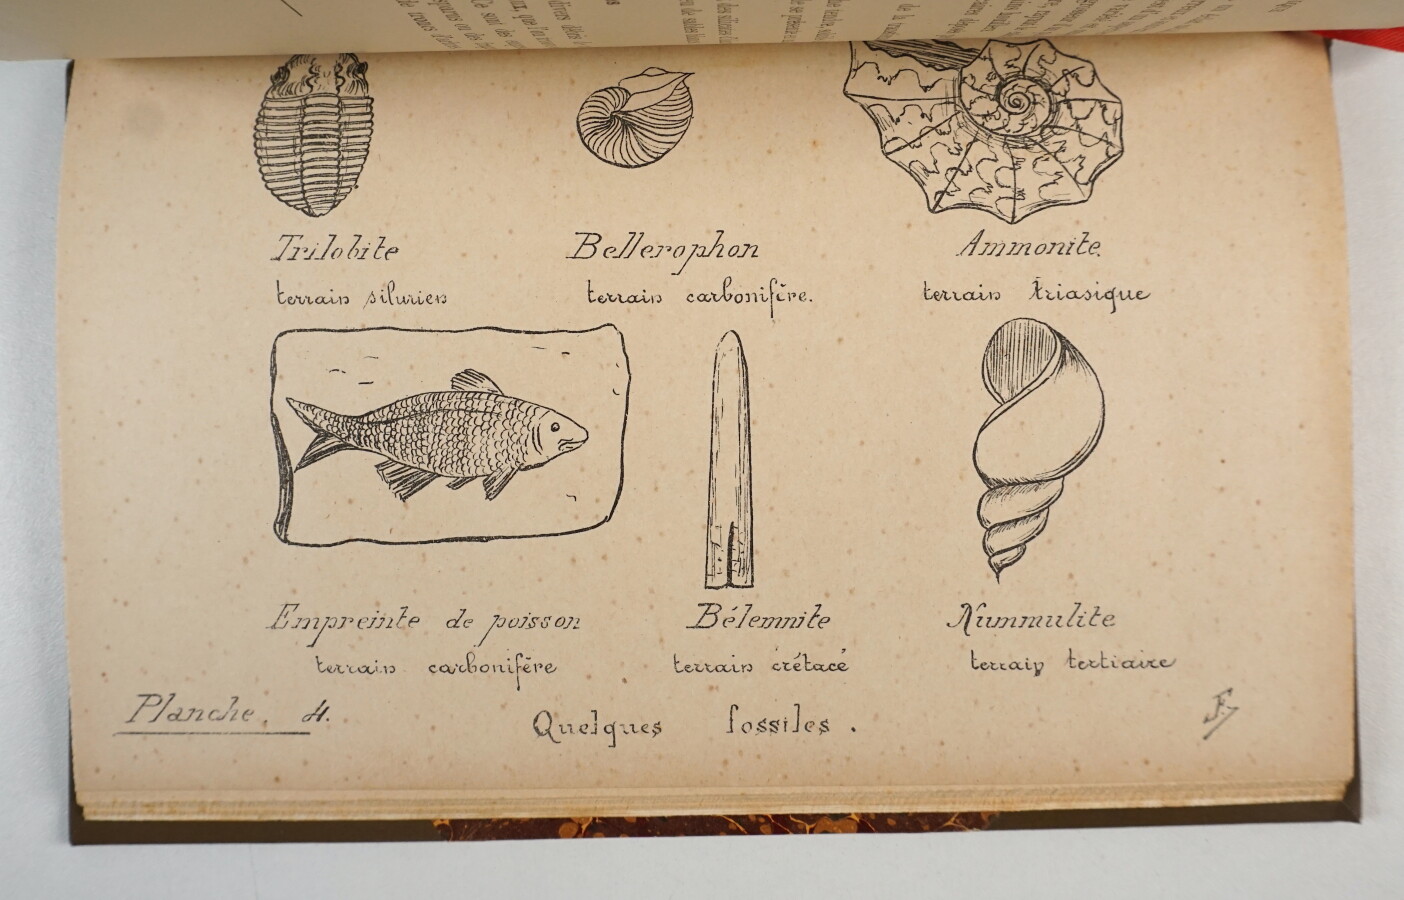 Trilobite
terrain silurien
Bellerophon
terrain carbonifère.
Ammonite.
terrain triasique
Empreinte de poisson
terrain carbonifère
Bélemnite
terrain crétacé
Nummulite
terrain tertiaire
Planche. 4.
Quelques fossiles.